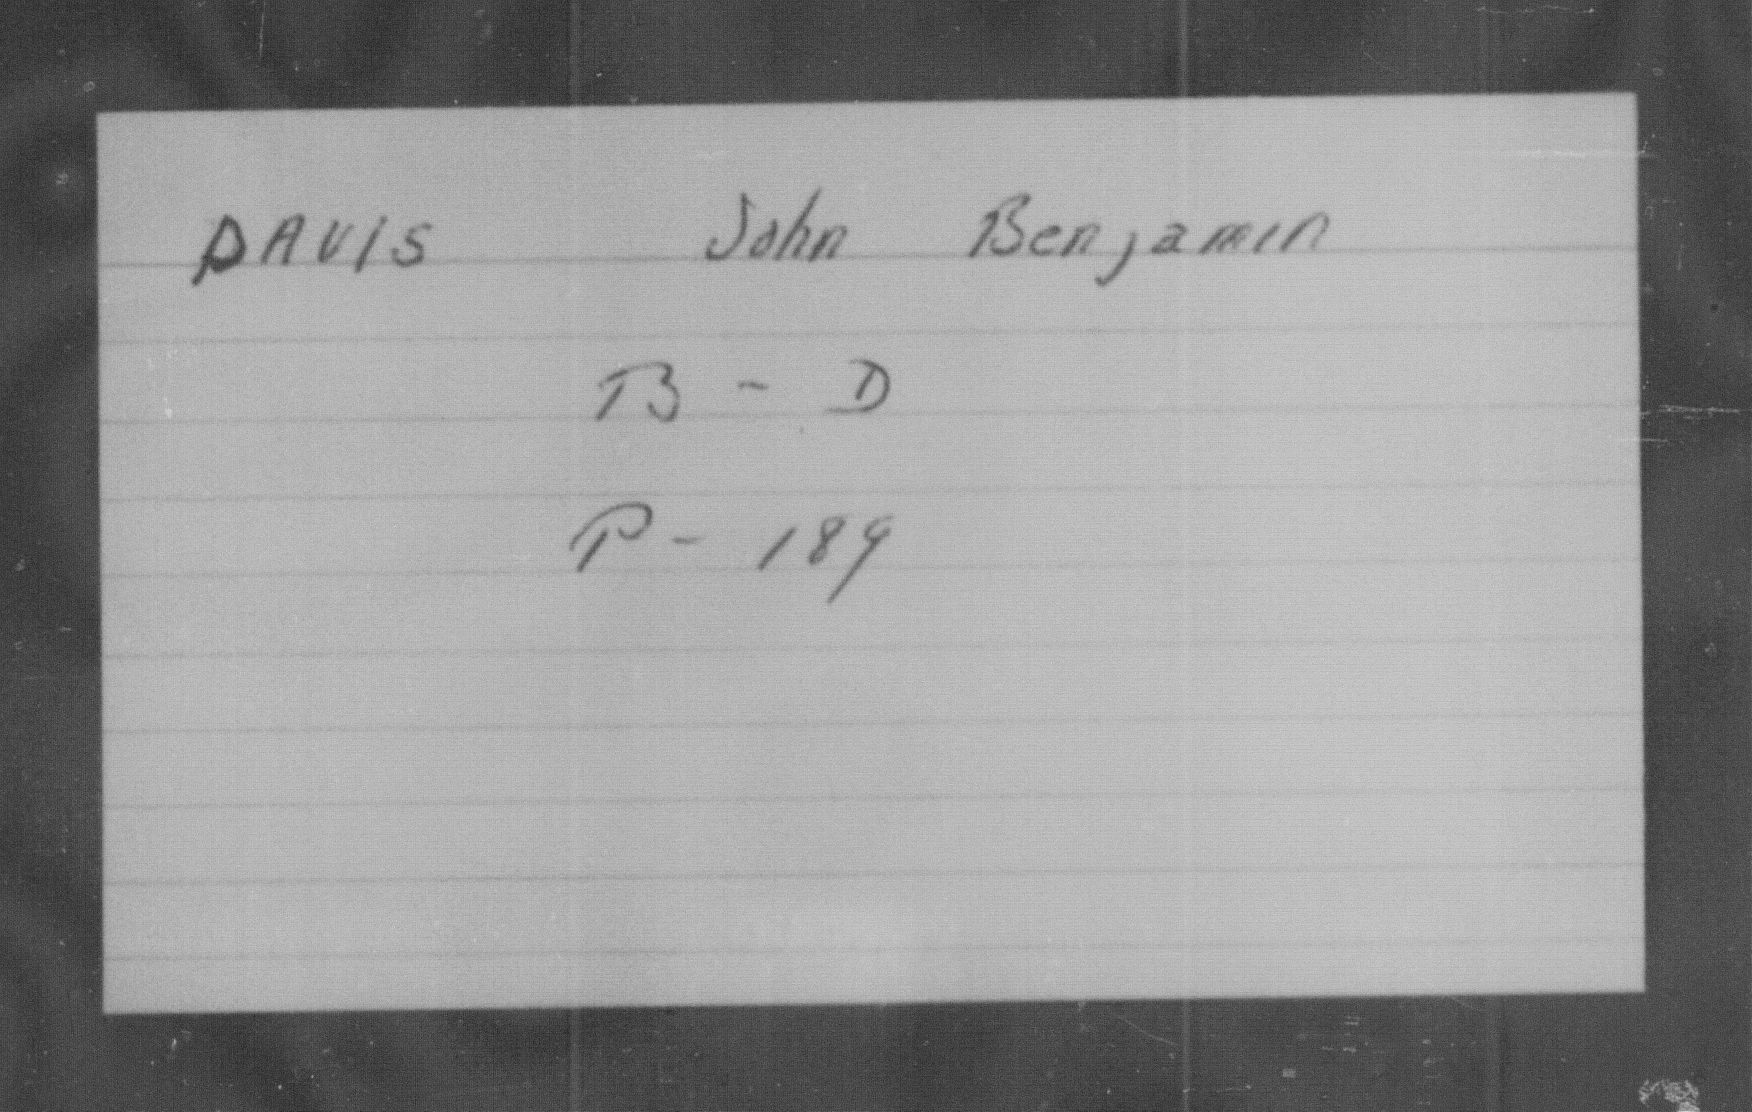 DAVIS John Benjamin
B - D
P - 189